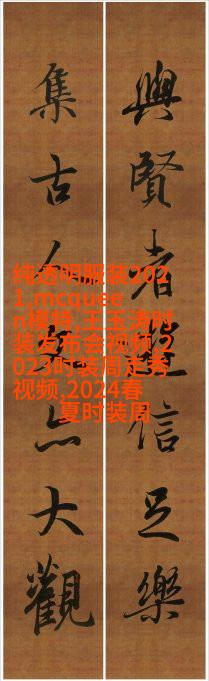 與賢者信足樂
集古人大觀
纯透明服装202
1,mcquee
n模特,王玉涛时
装发布会视频,2
023时装周走秀
视频,2024春
夏时装周